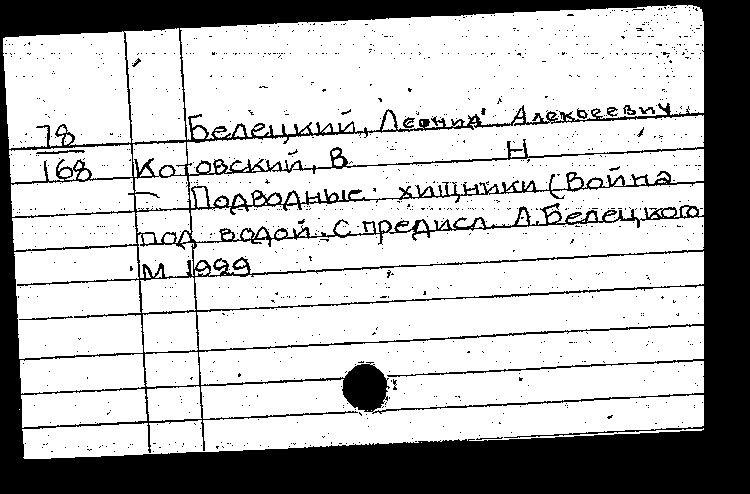 78 Белецкий, Леонид Алексеевич
168 Котовский, В Н
Подводные хищники (Война
под водой. С предисл. Л. Белецкого
М 1929